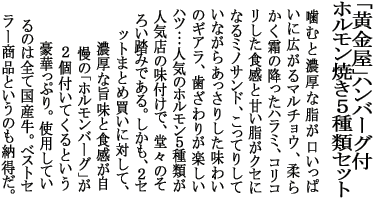 「黄金屋」ハンバーグ付
ホルモン焼き５種類セット
噛むと濃厚な脂が口いっぱ
いに広がるマルチョウ、柔ら
かく霜の降ったハラミ、コリコ
リした食感と甘い脂がクセに
なるミノサンド、こってりして
いながらあっさりした味わい
のギアラ、歯ざわりが楽しい
ハツ…人気のホルモン５種類が
人気店の味付けで、堂々のそ
ろい踏みである。しかも、２セ
ットまとめ買いに対して、
濃厚な旨味と食感が自
慢の「ホルモンバーグ」が
２個付いてくるという
豪華っぷり。使用してい
るのは全て国産牛。ベストセ
ラー商品というのも納得だ。